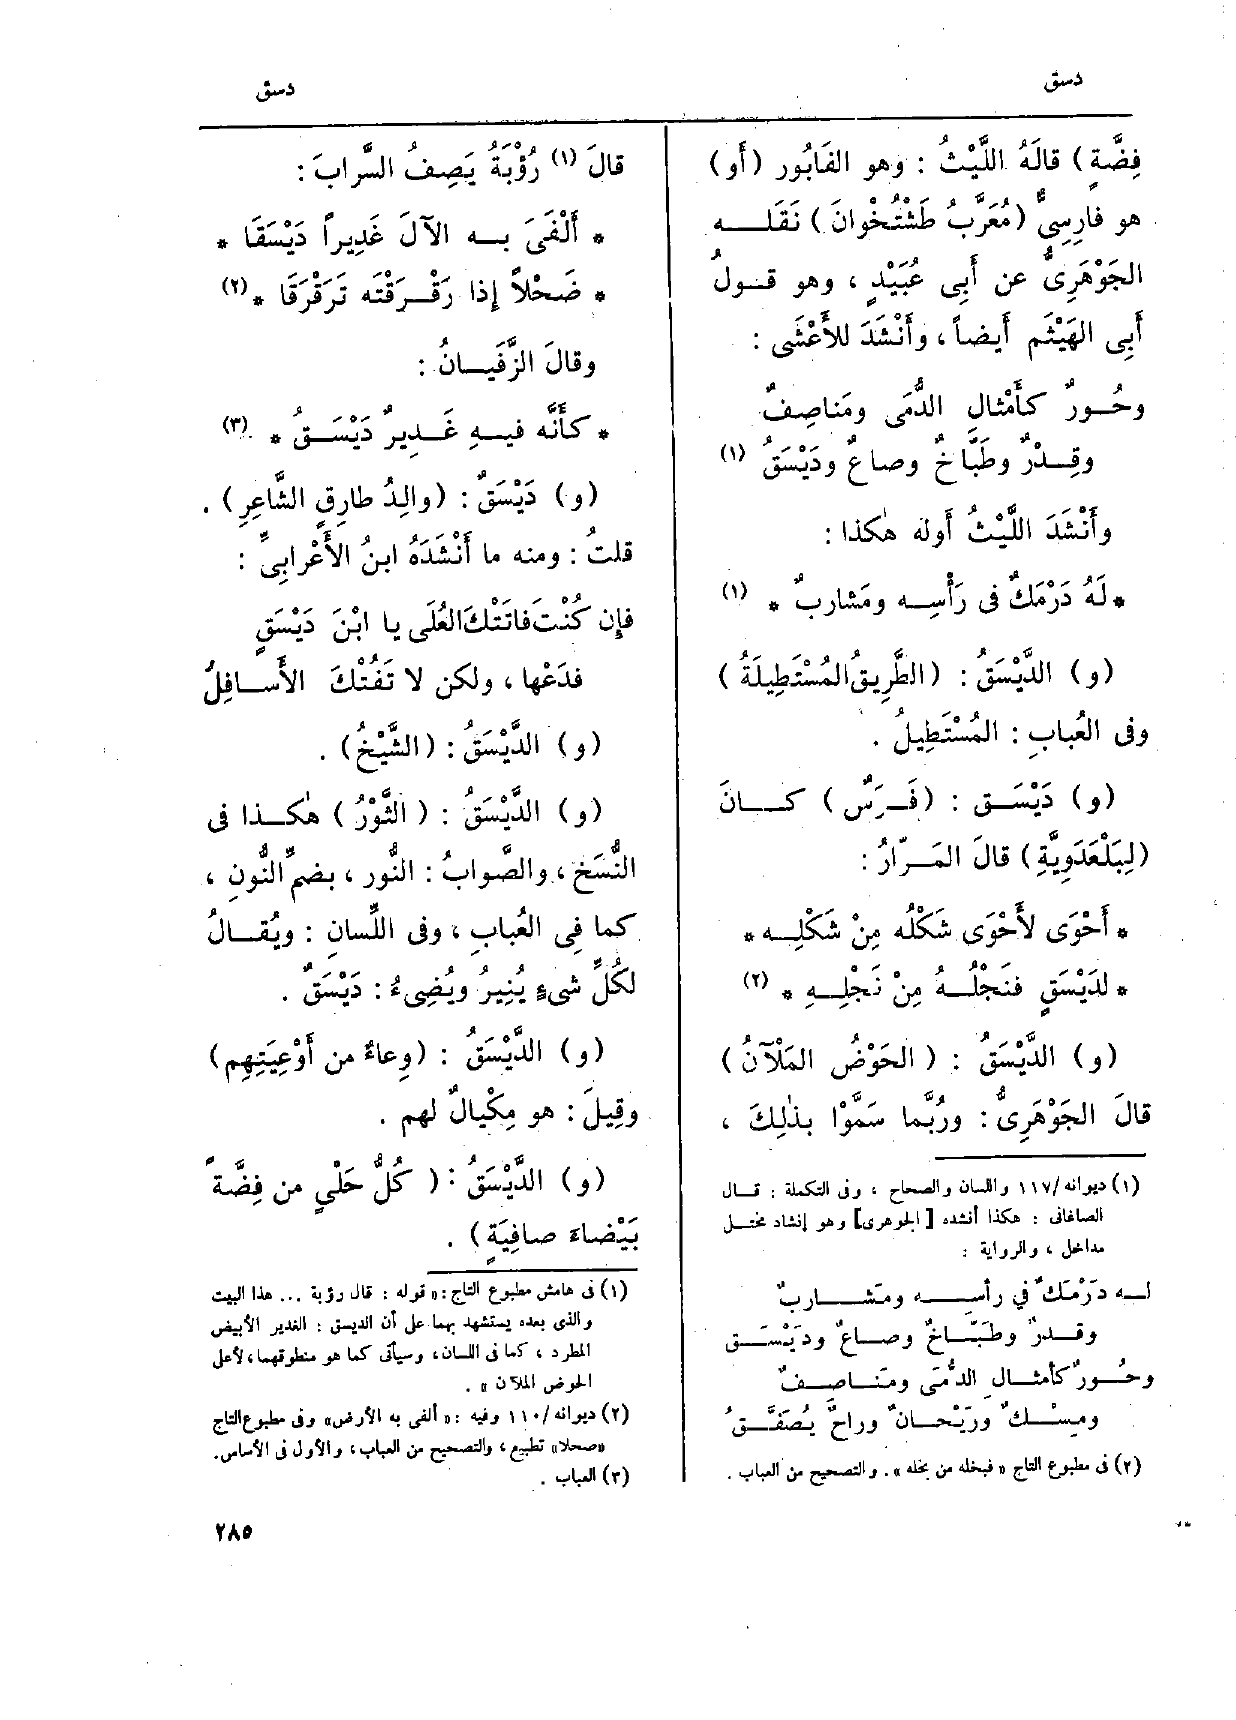 دسق
دسق
فِضَّةٍ) قالَهُ اللَّيْثُ : وهو الفَابُور (أَو)
هو فارِسِىٌّ (مُعَرَّبُ طَشْتُخْوانَ) نَقَلَـــه
الجَوْهَرِىُّ عن أَبِى عُبَيْدٍ ، وهو قــولُ
أَبِى الهَيْثَمِ أَيضاً ، وأَنْشَدَ للأَعْشَى :
وحُـــورٌ كأَمْثالِ الدُّمَى ومَناصِفٌ
وقِــدْرٌ وطَبّاخٌ وصاعٌ ودَيْسَقُ (١)
وأَنْشَدَ اللَّيْثُ أَوله هٰكذا :
* لَهُ دَرْمَكٌ فى رَأْسِــه ومَشارِبٌ * (١)
(و) الدَّيْسَقُ : (الطَّرِيقُ المُسْتَطِيلَةُ)
وفى العُبابِ : المُسْتَطِيلُ .
(و) دَيْسَـــق : (فَــرَسٌ) كـــانَ
(لِبَلْعَدَوِيَّةِ) قالَ المَــرّارُ :
* أَحْوَى لأَحْوَى شَكْلُه مِنْ شَكْلِــه *
* لدَيْسَقٍ فنَجْلُــهُ مِنْ نَجْلِــهِ * (٢)
(و) الدَّيْسَقُ : (الحَوْضُ المَلْآنُ)
قالَ الجَوْهَرِىُّ : ورُبَّما سَمَّوْا بذٰلِكَ ،
(١) ديوانه /١١٧ واللسان والصحاح ، وفى التكملة : قــال
الصاغانى : هكذا أنشده [الجوهرى] وهو إنشاد مختــل
مداخل ، والرواية :
لــه دَرْمَكٌ في رأســـه ومَشـــاربٌ
وقــدرٌ وطبّــاخٌ وصــاعٌ ودَيْسَــق
وحُــورٌ كأمثــال الدُّمَى ومَنــاصــفٌ
ومِسْــكٌ ورَيْحــانٌ وراحٌ يُصَفَّــقُ
(٢) فى مطبوع التاج « فبخله من بخله » . والتصحيح من العباب .
قالَ (١) رُؤْبَةُ يَصِفُ السَّرابَ :
* أَلْفَىَ بــه الآلَ غَدِيراً دَيْسَقَا *
* ضَحْلاً إِذا رَقْــرَقْتَه تَرَقْرَقَا * (٢)
وقالَ الزَّفَيــانُ :
* كأَنَّه فيــهِ غَــدِيرٌ دَيْسَــقُ * (٣)
(و) دَيْسَقٌ : (والِدُ طارِقٍ الشّاعِرِ) .
قلتُ : ومنه ما أَنْشَدَهُ ابنُ الأَعْرابِىِّ :
فإِن كُنْتَ فاتَتْكَ العُلَى يا ابْنَ دَيْسَقٍ
فدَعْها ، ولكن لا تَفُتْكَ الأَســافِلُ
(و) الدَّيْسَقُ : (الشَّيْخُ) .
(و) الدَّيْسَقُ : (الثَّوْرُ) هٰكــذا فى
النُّسَخ ، والصَّوابُ : النُّور ، بضمِّ النُّونِ ،
كما فِى العُبابِ ، وفى اللِّسانِ : ويُقــالُ
لكُلِّ شىءٍ يُنِيرُ ويُضِىءُ : دَيْسَقٌ .
(و) الدَّيْسَقُ : (وِعاءٌ من أَوْعِيَتِهِم)
وقِيلَ : هو مِكْيالٌ لهم .
(و) الدَّيْسَقُ : (كُلُّ حَلْيٍ من فِضَّةً
بَيْضاءَ صافِيَةٍ) .
(١) فى هامش مطبوع التاج : « قوله : قال رؤبة ... هذا البيت
والذى بعده يستشهد بهما على أن الديسق : الغدير الأبيض
المطرد ، كما فى اللسان ، وسيأتى كما هو منطوقهما ، لأعلى
الحوض الملآن » .
(٢) ديوانه /١١٠ وفيه : « ألفى به الأرض » وفى مطبوع التاج
« صحلا » تطبيع ، والتصحيح من العباب ، والأول فى الأساس .
(٣) العباب .
٢٨٥